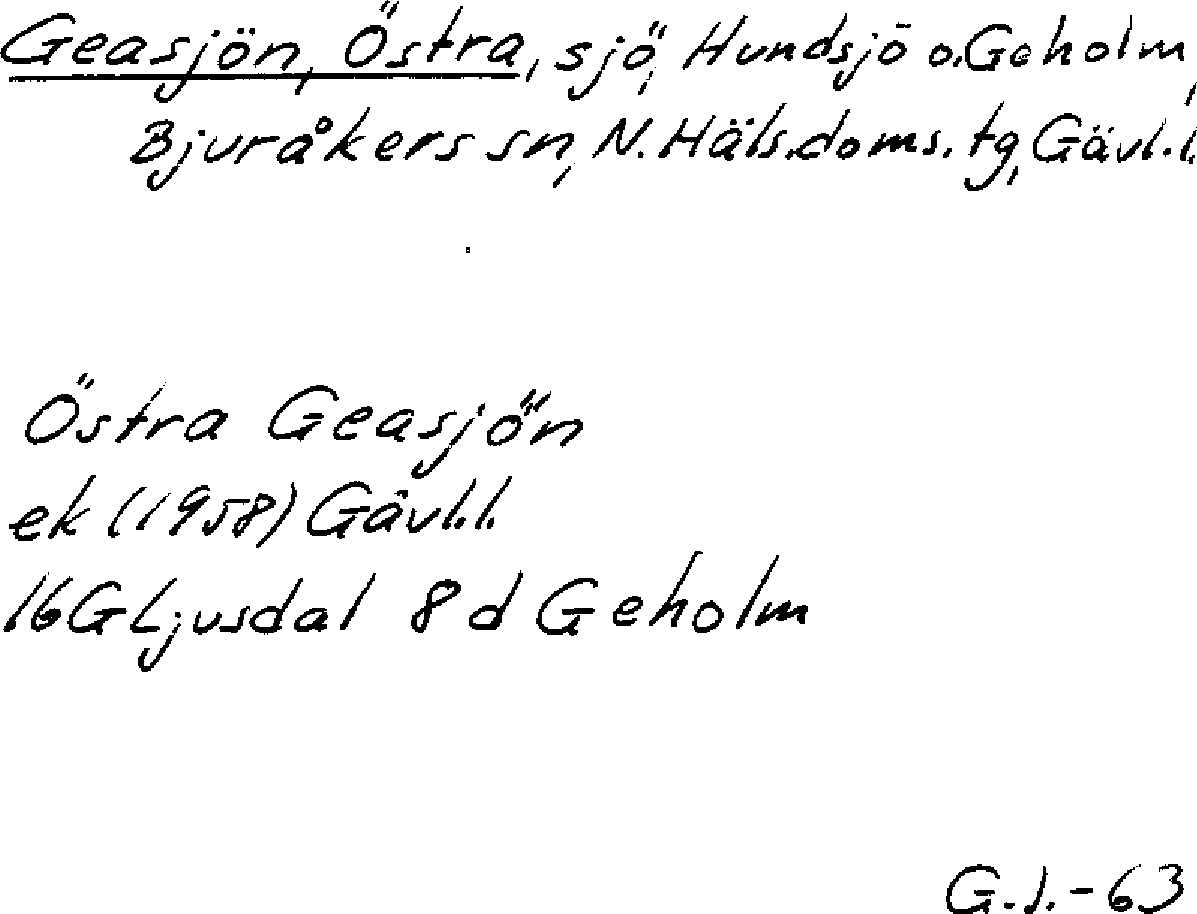 Geasjön, Östra, sjö, Hundsjö o. Geholm,
Bjuråkers sn, N. Häls. doms. tg, Gävl. l.
Östra Geasjön
ek (1958) Gävl. l.
16G Ljusdal 8 d Geholm
G. J. -63